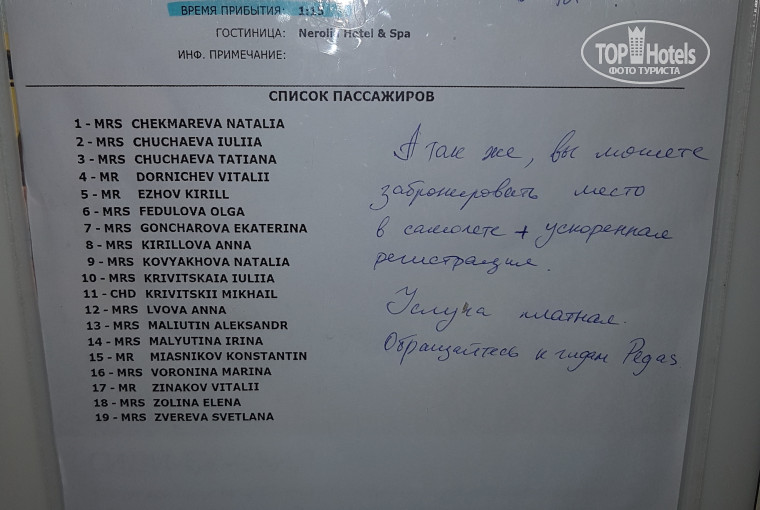 ВРЕМЯ ПРИБЫТИЯ: 1:15
ГОСТИНИЦА: Nerolia Hotel & Spa
ИНФ. ПРИМЕЧАНИЕ:
TOP Hotels
ФОТО ТУРИСТА
СПИСОК ПАССАЖИРОВ
1 - MRS CHEKMAREVA NATALIA
2 - MRS CHUCHAEVA IULIIA
3 - MRS CHUCHAEVA TATIANA
4 - MR DORNICHEV VITALII
5 - MR EZHOV KIRILL
6 - MRS FEDULOVA OLGA
7 - MRS GONCHAROVA EKATERINA
8 - MRS KIRILLOVA ANNA
9 - MRS KOVYAKHOVA NATALIA
10 - MRS KRIVITSKAIA IULIIA
11 - CHD KRIVITSKII MIKHAIL
12 - MRS LVOVA ANNA
13 - MRS MALIUTIN ALEKSANDR
14 - MRS MALYUTINA IRINA
15 - MR MIASNIKOV KONSTANTIN
16 - MRS VORONINA MARINA
17 - MR ZINAKOV VITALII
18 - MRS ZOLINA ELENA
19 - MRS ZVEREVA SVETLANA
А так же, вы можете
забронировать место
в самолете + ускоренная
регистрация.
Услуга платная.
Обращайтесь к гидам Pegas